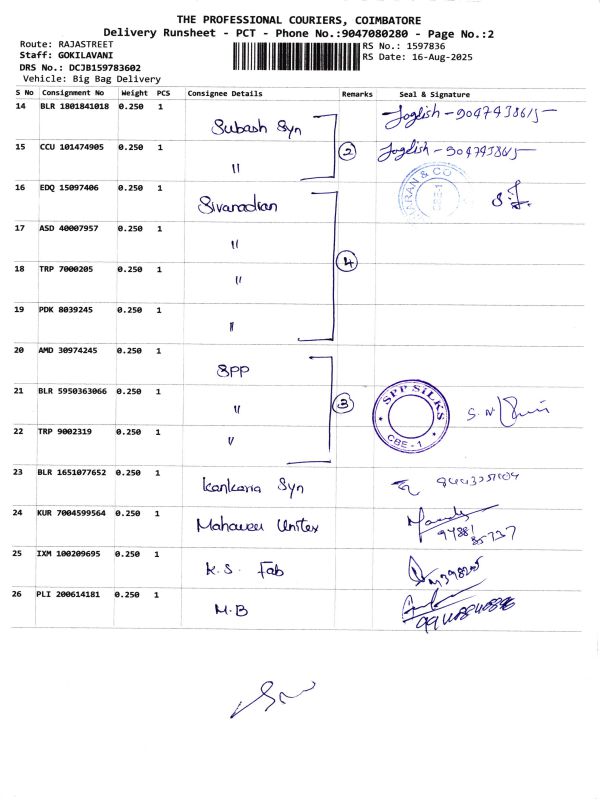 THE PROFESSIONAL COURIERS, COIMBATORE
Delivery Runsheet - PCT - Phone No.:9047080280 - Page No.:2
Route: RAJASTREET
RS No.: 1597836
Staff: GOKILAVANI
RS Date: 16-Aug-2025
DRS No.: DCJB159783602
Vehicle: Big Bag Delivery
S No Consignment No Weight PCS Consignee Details Remarks Seal & Signature
14 BLR 1801841018 0.250 1 Subash Syn Joglish - 9047438615
15 CCU 101474905 0.250 1 " 2 Joglish - 9047438615
16 EDQ 15097406 0.250 1 Sivanadian & CO CBE-1
17 ASD 40007957 0.250 1 "
18 TRP 7000205 0.250 1 " 4
19 PDK 8039245 0.250 1 "
20 AMD 30974245 0.250 1 SPP
21 BLR 5950363066 0.250 1 " 3 SPP SILKS CBE-1 S.N
22 TRP 9002319 0.250 1 "
23 BLR 1651077652 0.250 1 Kankaria Syn
24 KUR 7004599564 0.250 1 Mahaveer Unitex 94881 85737
25 IXM 100209695 0.250 1 K.S. Fab
26 PLI 200614181 0.250 1 M.B